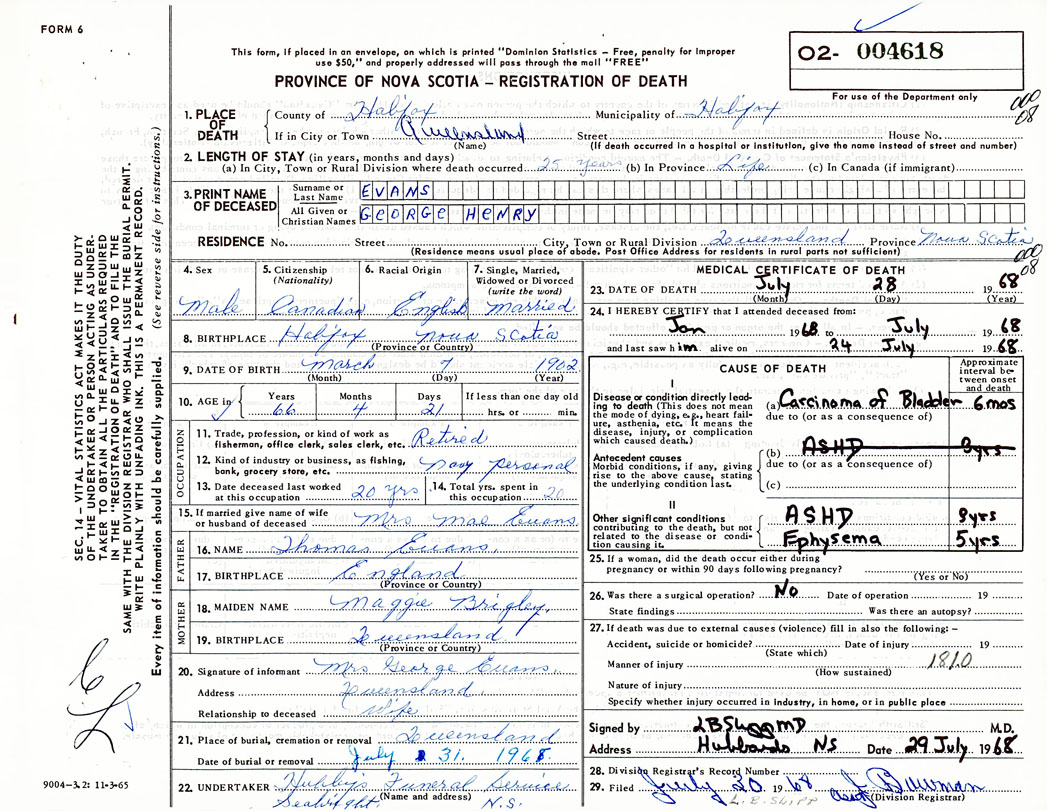 FORM 6
O2- 004618
This form, if placed in an envelope, on which is printed "Dominion Statistics – Free, penalty for improper
use $50," and properly addressed will pass through the mail "FREE"
PROVINCE OF NOVA SCOTIA – REGISTRATION OF DEATH
For use of the Department only
1. PLACE OF DEATH County of Halifax Municipality of Halifax
000 08
If in City or Town Queensland Street House No.
(Name) (If death occurred in a hospital or institution, give the name instead of street and number)
2. LENGTH OF STAY (in years, months and days)
(a) In City, Town or Rural Division where death occurred 25 years (b) In Province Life (c) In Canada (if immigrant)
3. PRINT NAME OF DECEASED
Surname or Last Name EVANS
All Given or Christian Names GEORGE HENRY
RESIDENCE No. Street City, Town or Rural Division Queensland Province Nova Scotia
(Residence means usual place of abode. Post Office Address for residents in rural parts not sufficient)
000 08
4. Sex Male
5. Citizenship (Nationality) Canadian
6. Racial Origin English
7. Single, Married, Widowed or Divorced (write the word) Married
8. BIRTHPLACE Halifax Nova Scotia
(Province or Country)
9. DATE OF BIRTH March 7 1902
(Month) (Day) (Year)
10. AGE in Years 66 Months 4 Days 21 If less than one day old hrs. or min.
OCCUPATION
11. Trade, profession, or kind of work as
fisherman, office clerk, sales clerk, etc. Retired
12. Kind of industry or business, as fishing,
bank, grocery store, etc. Navy personal
13. Date deceased last worked
at this occupation 20 yrs
14. Total yrs. spent in
this occupation 20
15. If married give name of wife
or husband of deceased Mrs Mae Evans
FATHER
16. NAME Thomas Evans
17. BIRTHPLACE England
(Province or Country)
MOTHER
18. MAIDEN NAME Maggie Brigley
19. BIRTHPLACE Queensland
(Province or Country)
20. Signature of informant Mrs George Evans
Address Queensland
Relationship to deceased Wife
21. Place of burial, cremation or removal Queensland
Date of burial or removal July 31 1968
22. UNDERTAKER Hubley's Funeral Service
(Name and address)
Seabright N.S.
MEDICAL CERTIFICATE OF DEATH
23. DATE OF DEATH July 28 1968
(Month) (Day) (Year)
24. I HEREBY CERTIFY that I attended deceased from:
Jan 1968 to July 1968
and last saw him alive on 24 July 1968
CAUSE OF DEATH
Approximate interval between onset and death
I
Disease or condition directly leading to death (This does not mean the mode of dying, e.g., heart failure, asthenia, etc. It means the disease, injury, or complication which caused death.)
(a) Carcinoma of Bladder 6 mos
due to (or as a consequence of)
Antecedent causes
Morbid conditions, if any, giving rise to the above cause, stating the underlying condition last.
(b) ASHD 8 yrs
due to (or as a consequence of)
(c)
II
Other significant conditions contributing to the death, but not related to the disease or condition causing it.
ASHD 8 yrs
Ephysema 5 yrs
25. If a woman, did the death occur either during
pregnancy or within 90 days following pregnancy?
(Yes or No)
26. Was there a surgical operation? No Date of operation 19
State findings Was there an autopsy?
27. If death was due to external causes (violence) fill in also the following: –
Accident, suicide or homicide? Date of injury 19
(State which)
Manner of injury 1810
(How sustained)
Nature of injury
Specify whether injury occurred in Industry, in home, or in public place
Signed by MD M.D.
Address Hubbards NS Date 29 July 1968
28. Division Registrar's Record Number
29. Filed July 30 1968
(Division Registrar)
SEC. 14 – VITAL STATISTICS ACT MAKES IT THE DUTY
OF THE UNDERTAKER OR PERSON ACTING AS UNDER-
TAKER TO OBTAIN ALL THE PARTICULARS REQUIRED
IN THE "REGISTRATION OF DEATH" AND TO FILE THE
SAME WITH THE DIVISION REGISTRAR WHO SHALL ISSUE BURIAL PERMIT.
WRITE PLAINLY WITH UNFADING INK. THIS IS A PERMANENT RECORD.
Every item of information should be carefully supplied. (See reverse side for instructions.)
9004-3.2: 11-3-65